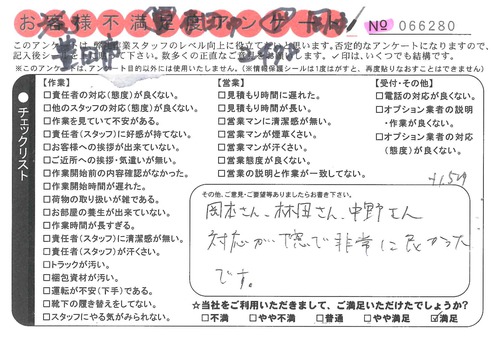 お客様不満足度アンケート
№ 066280
このアンケートは、弊社営業スタッフのレベル向上に役立てたいと思います。否定的なアンケートになりますので、
記入後シールを貼って下さい。数多くの正直なご意見をお願いします。✓印は、いくつでも結構です。
※このアンケートは、アンケート目的以外には使用いたしません。(※情報保護シールは1度はがすと、再度貼りなおすことはできません)
チェックリスト
【作業】
□責任者の対応(態度)が良くない。
□他のスタッフの対応(態度)が良くない。
□作業を見ていて不安がある。
□責任者(スタッフ)に好感が持てない。
□お客様への挨拶が出来ていない。
□ご近所への挨拶・気遣いが無い。
□作業開始前の内容確認がなかった。
□作業開始時間が遅れた。
□荷物の取り扱いが雑である。
□お部屋の養生が出来ていない。
□作業時間が長すぎる。
□責任者(スタッフ)に清潔感が無い。
□責任者(スタッフ)が汗くさい。
□トラックが汚い。
□梱包資材が汚い。
□運転が不安(下手)である。
□靴下の履き替えをしてない。
□スタッフにやる気がみられない。
【営業】
□見積もり時間に遅れた。
□見積もり時間が長い。
□営業マンに清潔感が無い。
□営業マンが煙草くさい。
□営業マンが汗くさい。
□営業態度が良くない。
□営業の説明と作業が一致してない。
【受付・その他】
□電話の対応が良くない。
□オプション業者の説明
・作業が良くない。
□オプション業者の対応
(態度)が良くない。
その他、ご意見・ご要望等ありましたらお書き下さい。
岡本さん、林田さん、中野さん
対応が丁寧で非常に良かった
です。
☆当社をご利用いただきまして、ご満足いただけたでしょうか?
□不満 □やや不満 □普通 □やや満足 ☑満足